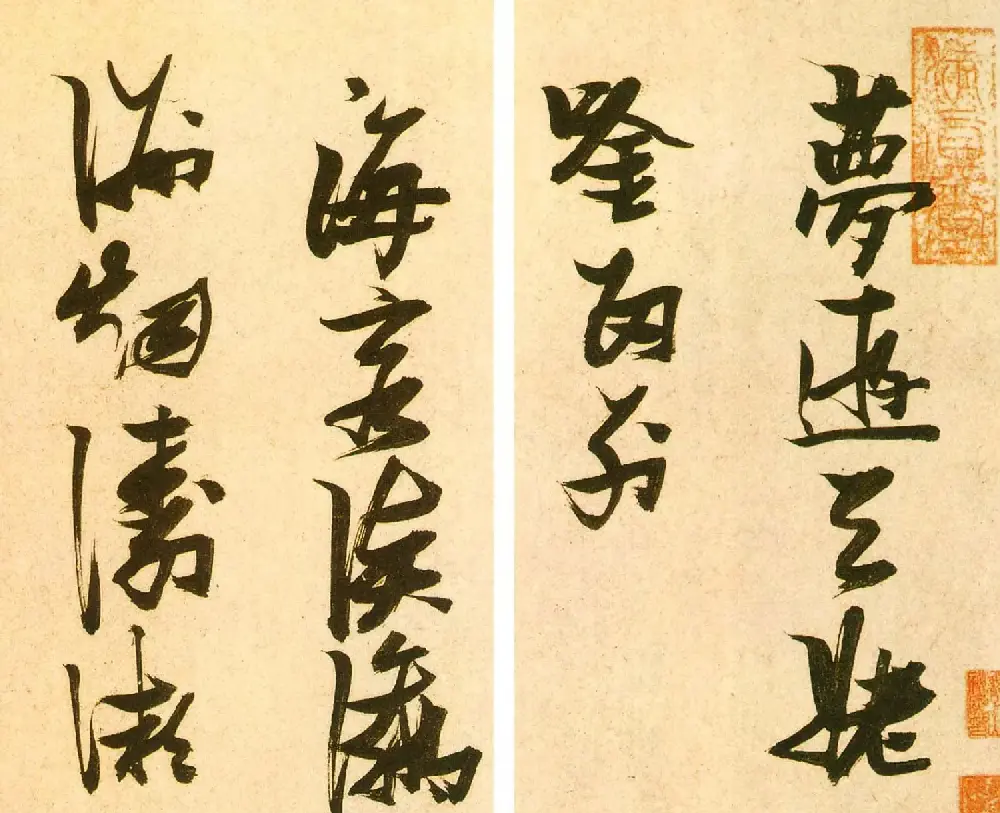 夢遊天姥
唫留別
海客談瀛
洲烟濤